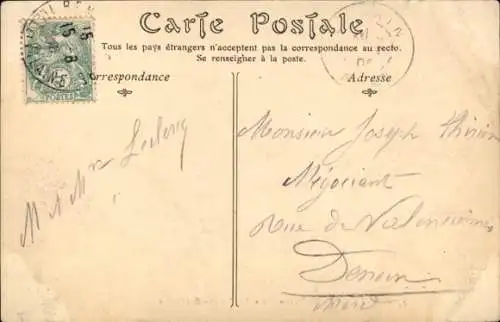 Carte Postale
Tous les pays étrangers n'acceptent pas la correspondance au recto.
Se renseigner à la poste.
Correspondance
Adresse
M et Mme Leclercq
Monsieur Joseph
Négociant
Rue de Valenciennes
Denain
Nord
POSTES
15